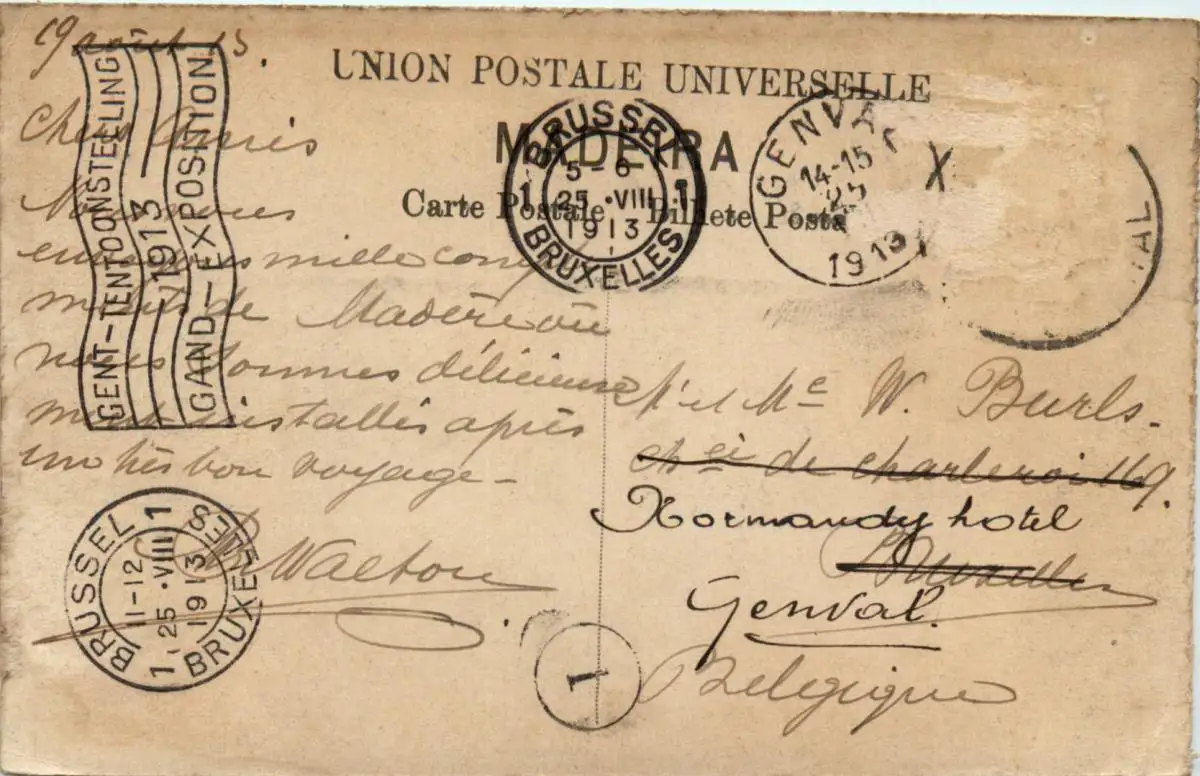 19 août 13.
UNION POSTALE UNIVERSELLE
MADEIRA
Carte Postale Bilhete Posta
GENT-TENTOONSTELLING
1913 1913
GAND-EXPOSITION
BRUSSEL
5-6
1 25 ·VIII 1
1913
BRUXELLES
GENVA
14-15
1913
X
AL
Chers Amis
Nous vous
envoyons mille
de Madère où
nous sommes délicieuse
ment installés après
un très bon voyage-
Walton
Mr et Me W. Burls.
chée de charleroi 169.
Normandy hotel
Bruxelles
Genval.
Belgique
BRUSSEL
11-12
1 25 ·VIII 1
1913
BRUXELLES
1